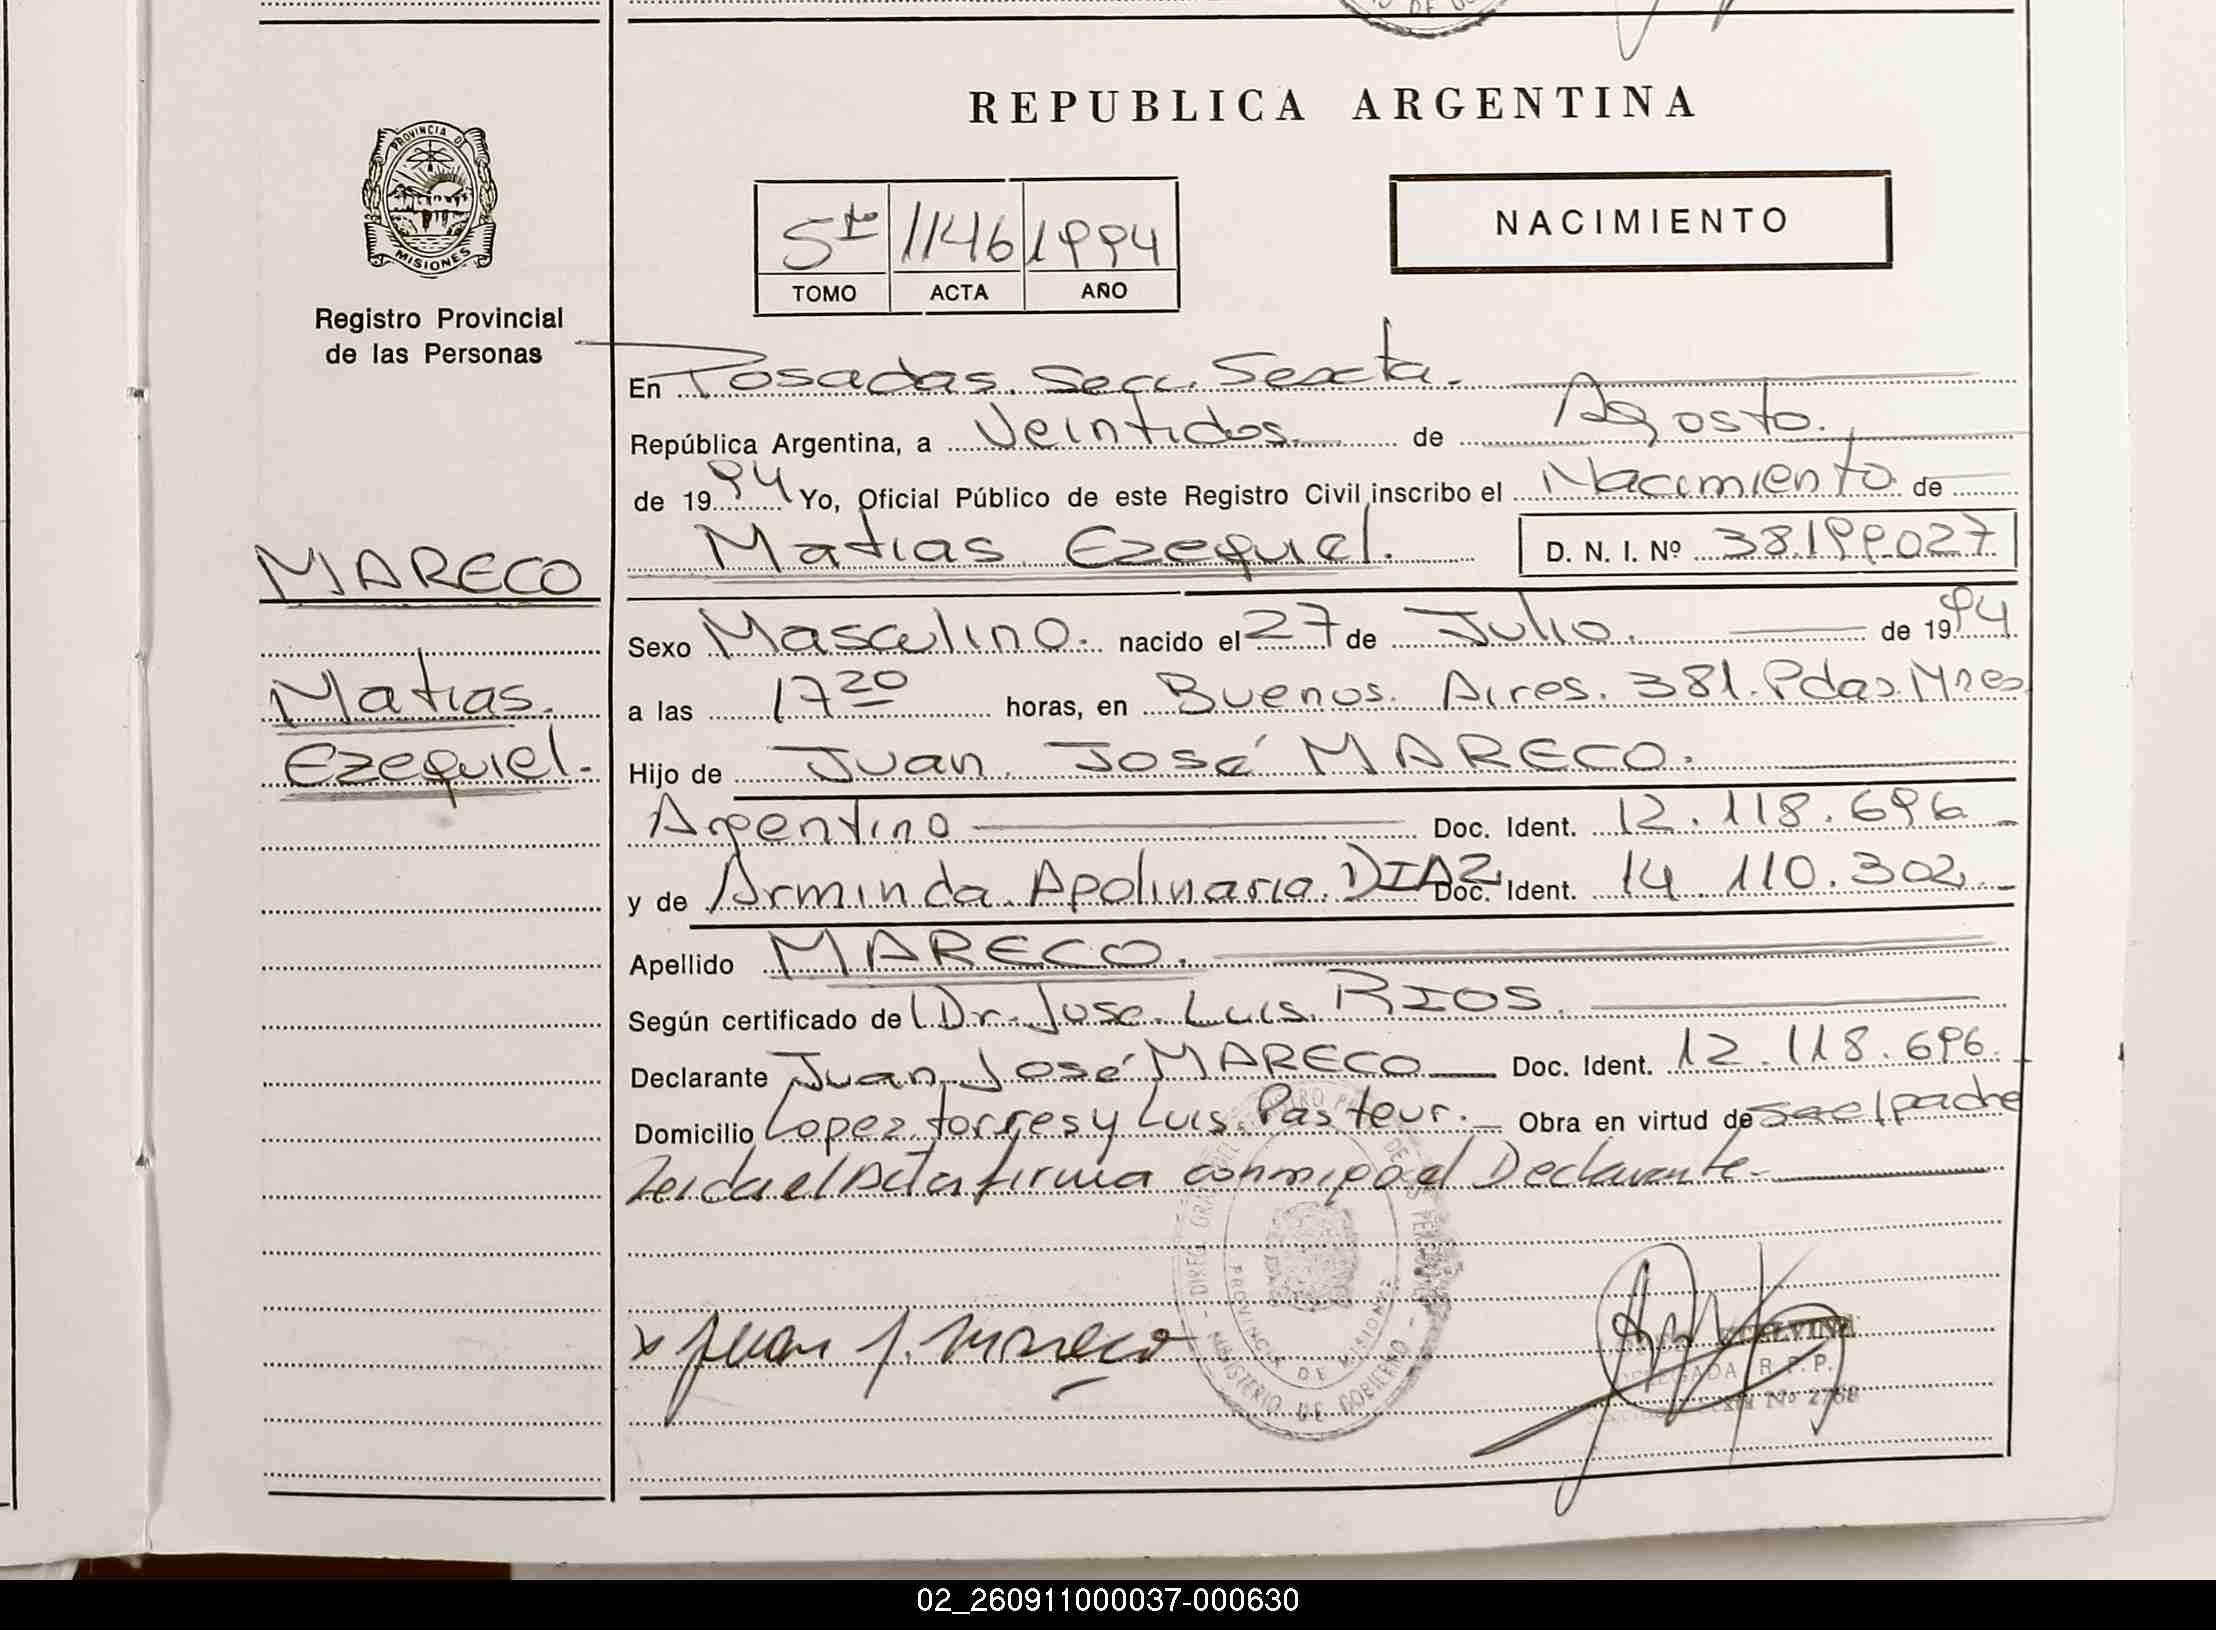 REPUBLICA ARGENTINA
PROVINCIA DE
MISIONES
Registro Provincial
de las Personas
5to 1146 1994
TOMO ACTA AÑO
NACIMIENTO
En Posadas. Secc. Sexta.
República Argentina, a Veintidos de Agosto.
de 1994 Yo, Oficial Público de este Registro Civil inscribo el Nacimiento de
Matias Ezequiel. D. N. I. Nº 38.199.027
MARECO
Matias.
Ezequiel.
Sexo Masculino. nacido el 27 de Julio. de 1994
a las 17 20 horas, en Buenos. Aires. 381. Pdas. Mnes
Hijo de Juan. José MARECO.
Argentino Doc. Ident. 12.118.696
y de Arminda. Apolinaria. DIAZ Doc. Ident. 14.110.302
Apellido MARECO.
Según certificado de Dr. Jose. Luis. RIOS.
Declarante Juan José MARECO Doc. Ident. 12.118.696.
Domicilio Lopez. torres y Luis. Pasteur. Obra en virtud de ser el padre
Leida el Acta firma conmigo el Declarante.
x Juan J. Mareco
PROVINCIA DE MISIONES
MINISTERIO DE GOBIERNO
DELEGADA R. P. P.
Nº 2768
02_260911000037-000630